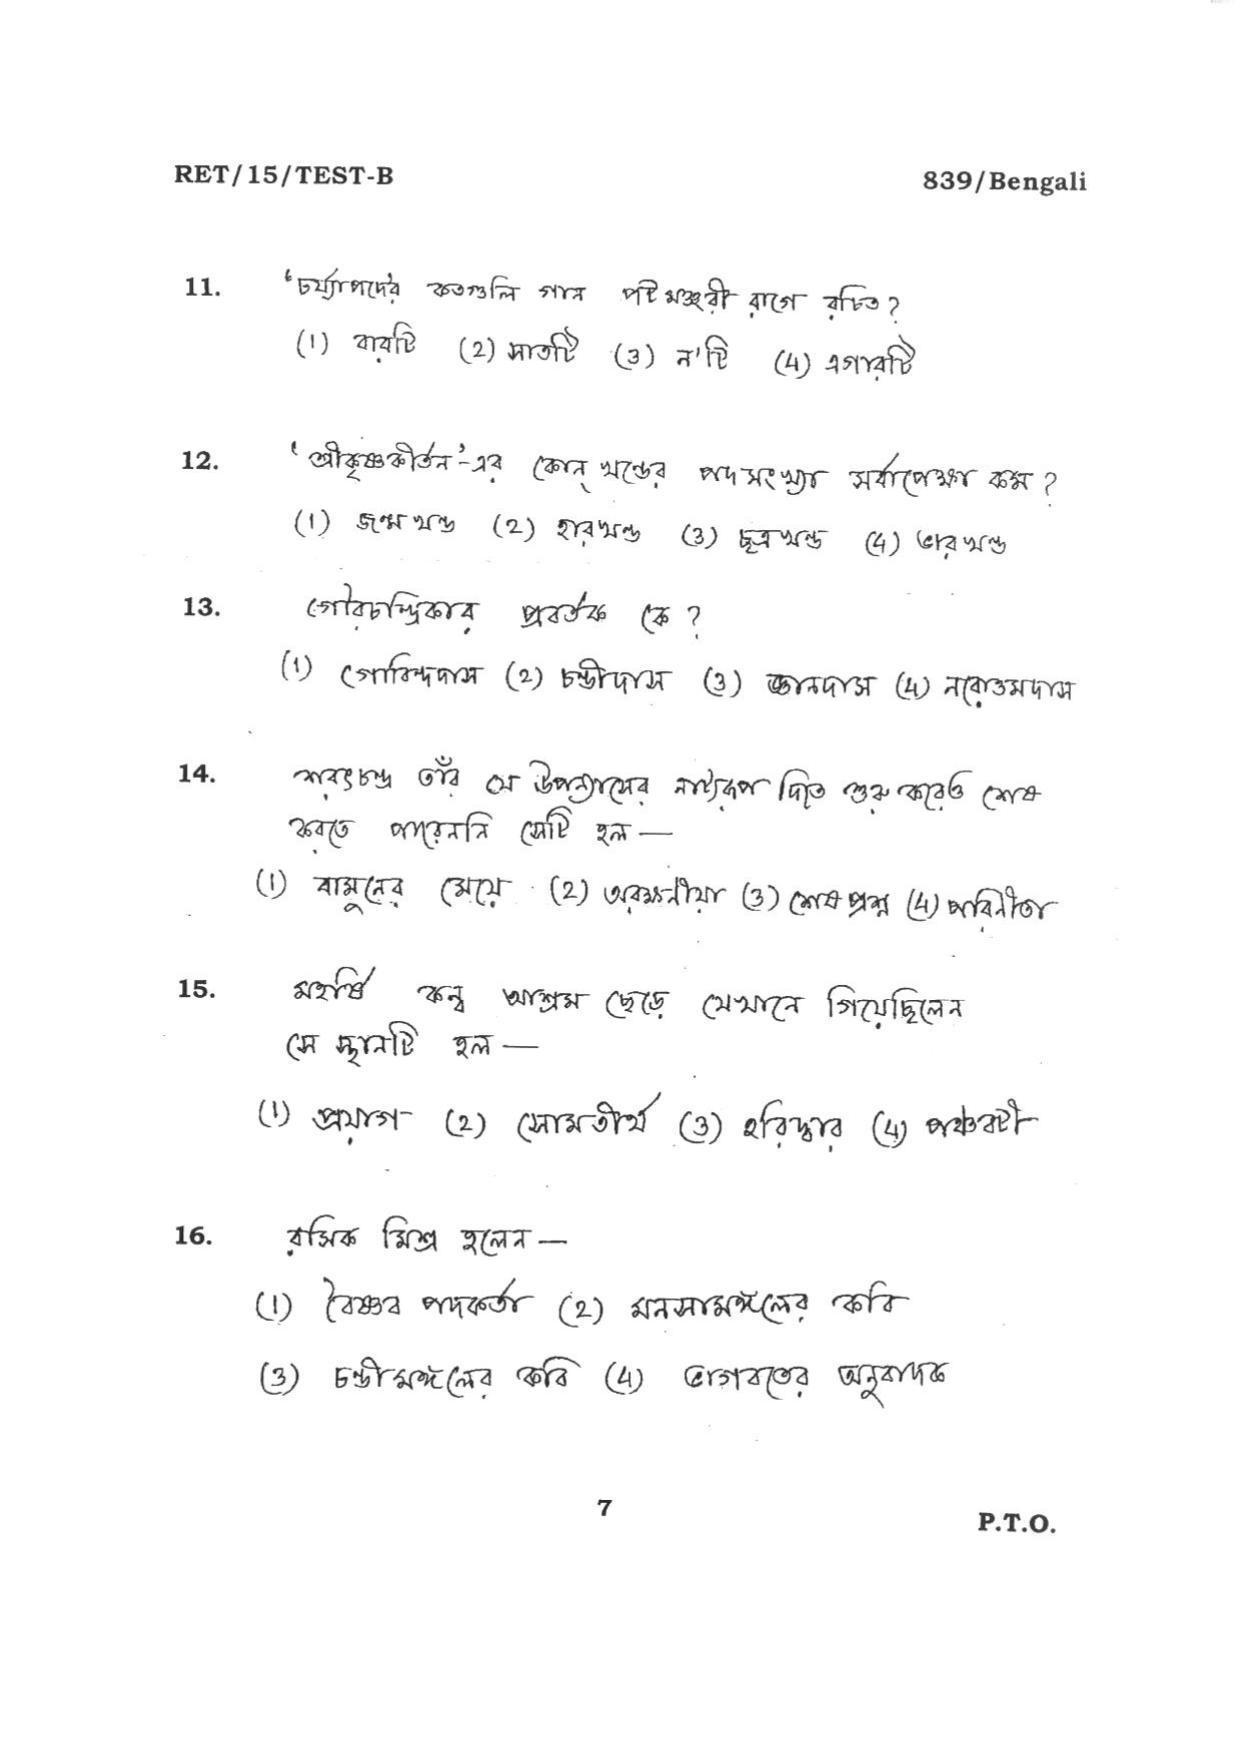 RET/15/TEST-B
839/Bengali
11. ‘চর্য্যাপদের কতগুলি গান পটমঞ্জরী রাগে রচিত?
(1) বারটি (2) সাতটি (3) ন'টি (4) এগারটি
12. ‘শ্রীকৃষ্ণকীর্তন’-এর কোন্ খন্ডের পদসংখ্যা সর্বাপেক্ষা কম?
(1) জন্মখন্ড (2) হারখন্ড (3) ছত্রখন্ড (4) ভারখন্ড
13. গৌরচন্দ্রিকার প্রবর্তক কে?
(1) গোবিন্দদাস (2) চন্ডীদাস (3) জ্ঞানদাস (4) নরোত্তমদাস
14. শরৎচন্দ্র তাঁর যে উপন্যাসের নাট্যরূপ দিতে শুরু করেও শেষ
করতে পারেননি সেটি হল —
(1) বামুনের মেয়ে (2) অরক্ষনীয়া (3) শেষ প্রশ্ন (4) পরিনীতা
15. মহর্ষি কন্ব আশ্রম ছেড়ে যেখানে গিয়েছিলেন
সে স্থানটি হল —
(1) প্রয়াগ (2) সোমতীর্থ (3) হরিদ্বার (4) পঞ্চবটী
16. রসিক মিশ্র হলেন —
(1) বৈষ্ণব পদকর্তা (2) মনসামঙ্গলের কবি
(3) চন্ডীমঙ্গলের কবি (4) ভাগবতের অনুবাদক
7
P.T.O.